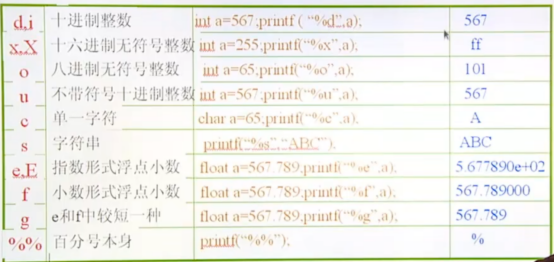 d,i 十进制整数 int a=567;printf ( “%d”,a); 567
x,X 十六进制无符号整数 int a=255;printf(“%x”,a); ff
o 八进制无符号整数 int a=65;printf(“%o”,a); 101
u 不带符号十进制整数 int a=567;printf(“%u”,a); 567
c 单一字符 char a=65;printf(“%c”,a); A
s 字符串 printf(“%s”,“ABC”); ABC
e,E 指数形式浮点小数 float a=567.789;printf(“%e”,a); 5.677890e+02
f 小数形式浮点小数 float a=567.789;printf(“%f”,a); 567.789000
g e和f中较短一种 float a=567.789;printf(“%g”,a); 567.789
%% 百分号本身 printf(“%%”); %